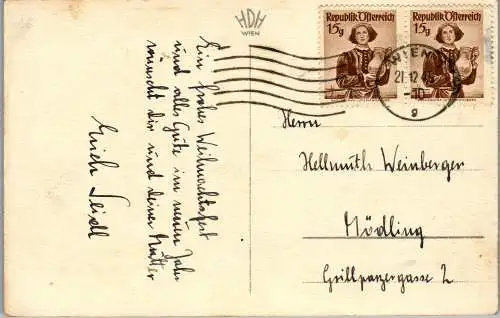 HDH
WIEN
Ein frohes Weihnachtsfest
und alles Gute im neuen Jahr
wünscht dir und deiner Mutter
Erich Seidl
Republik Österreich
15g
Republik Österreich
15g
WIEN
21.12.
-10
9
Herrn
Hellmuth Weinberger
Mödling
Grillparzergasse 2